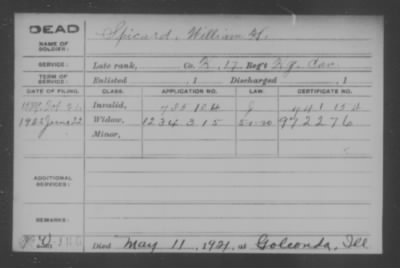 DEAD
NAME OF SOLDIER: Spicard, William H.
SERVICE: Late rank, Co. K, 17 Reg't Ky. Cav.
TERM OF SERVICE: Enlisted , 1 Discharged , 1
DATE OF FILING. CLASS. APPLICATION NO. LAW. CERTIFICATE NO.
Invalid, 735104
1925 June 22 Widow, 1234315 972276
Minor,
ADDITIONAL SERVICES:
REMARKS:
Died May 11, 1921, at Golconda, Ill